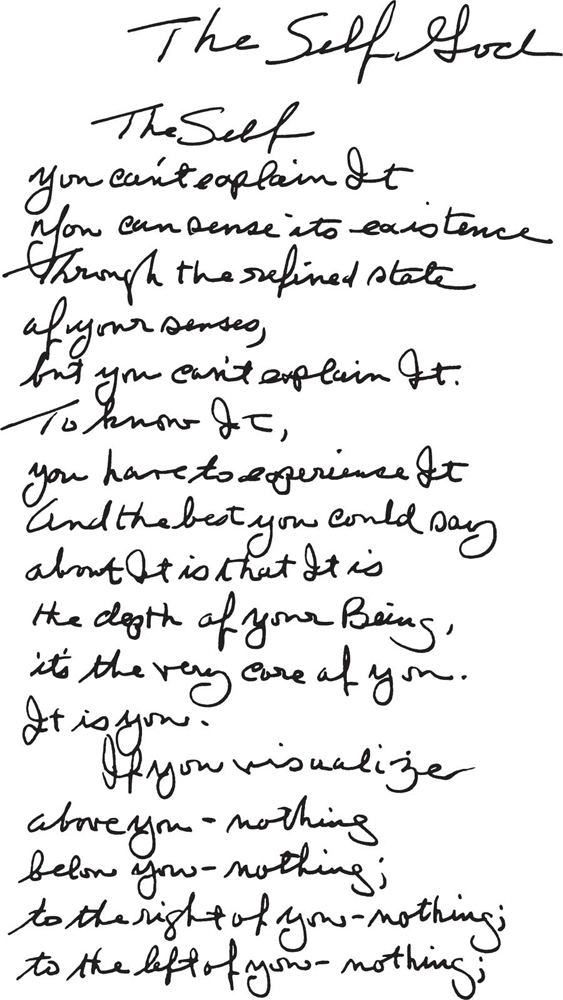 The Self God
The Self
you can't explain It
You can sense its existence
through the refined state
of your senses,
but you can't explain It.
To know It,
you have to experience It
And the best you could say
about It is that It is
the depth of your Being,
it's the very core of you.
It is you.
If you visualize
above you - nothing
below you - nothing;
to the right of you - nothing;
to the left of you - nothing;